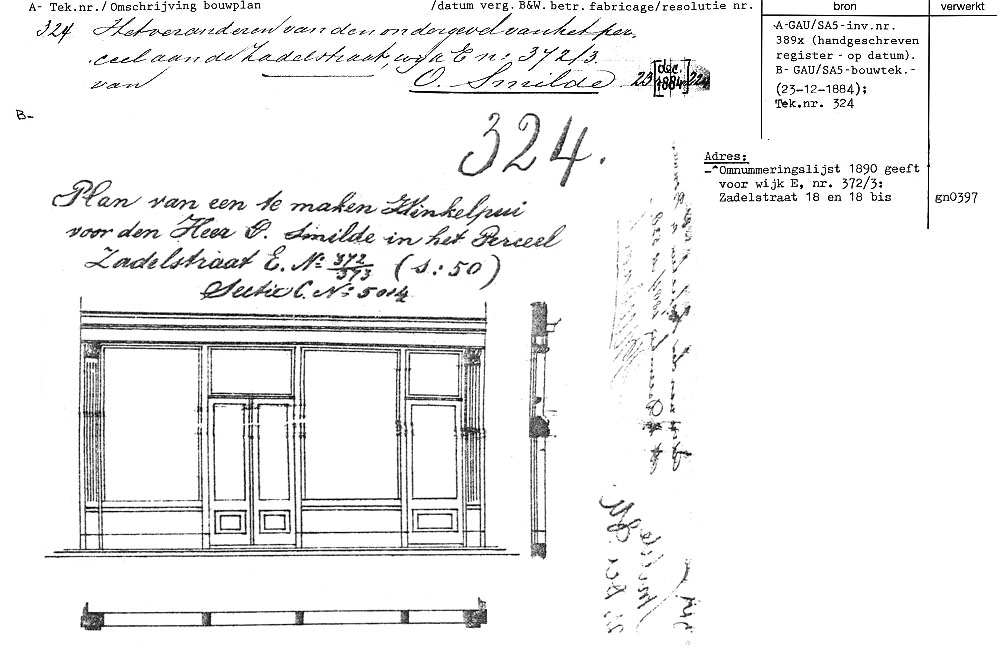 A- Tek.nr./ Omschrijving bouwplan /datum verg. B&W. betr. fabricage/resolutie nr. bron verwerkt
324 Het veranderen van den ondergevel van het per-
ceel aan de Zadelstraat, wijk E n: 372/3.
van O. Smilde 23 [dec. 1884] 324
-A-GAU/SA5-inv.nr.
389x (handgeschreven
register - op datum).
B- GAU/SA5-bouwtek.-
(23-12-1884);
Tek.nr. 324
B-
324.
Adres:
-^Omnummeringslijst 1890 geeft
voor wijk E, nr. 372/3:
Zadelstraat 18 en 18 bis gn0397
Plan van een te maken Winkelpui
voor den Heer O. Smilde in het Perceel
Zadelstraat E. No: 372/373 (S.: 50)
Sectie C. No: 5014